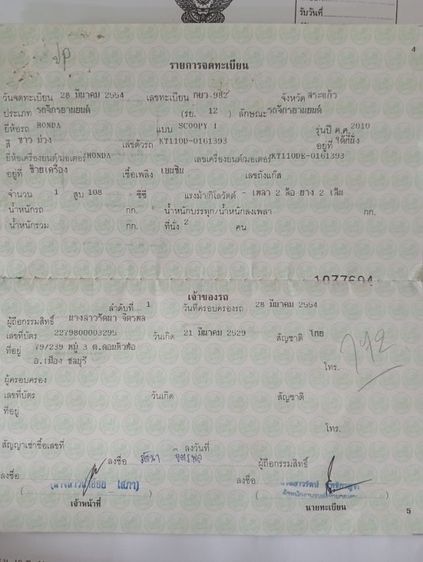 รับวันที่
4
รายการจดทะเบียน
วันจดทะเบียน 28 มีนาคม 2554 เลขทะเบียน กยว 982 จังหวัด สระแก้ว
ประเภท รถจักรยานยนต์ (รย. 12 ) ลักษณะ รถจักรยานยนต์
ยี่ห้อรถ HONDA แบบ SCOOPY I รุ่นปี ค.ศ. 2010
สี ขาว ม่วง เลขตัวรถ KT110D-0161393 อยู่ที่
ยี่ห้อเครื่องยนต์/มอเตอร์ HONDA เลขเครื่องยนต์/มอเตอร์ KT110DE-0161393
อยู่ที่ ซ้ายเครื่อง เชื้อเพลิง เบนซิน เลขถังแก๊ส
จำนวน 1 สูบ 108 ซีซี แรงม้า/กิโลวัตต์ - เพลา 2 ล้อ ยาง 2 เส้น
น้ำหนักรถ กก. น้ำหนักบรรทุก/น้ำหนักลงเพลา กก.
น้ำหนักรวม กก. ที่นั่ง 2 คน
1077694
เจ้าของรถ
ลำดับที่ 1 วันที่ครอบครองรถ 28 มีนาคม 2554
ผู้ถือกรรมสิทธิ์ นางสาววัฒนา จิตรพล
เลขที่บัตร 2279800003295 วันเกิด 21 มีนาคม 2529 สัญชาติ ไทย
ที่อยู่ 79/239 หมู่ 3 ต.ดอนหัวฬ่อ
อ.เมือง ชลบุรี โทร.
ผู้ครอบครอง
เลขที่บัตร วันเกิด สัญชาติ
ที่อยู่
โทร.
สัญญาเช่าซื้อเลขที่ ลงวันที่
ลงชื่อ ผู้ถือกรรมสิทธิ์
ลงชื่อ ลงชื่อ
เจ้าหน้าที่ นายทะเบียน
5